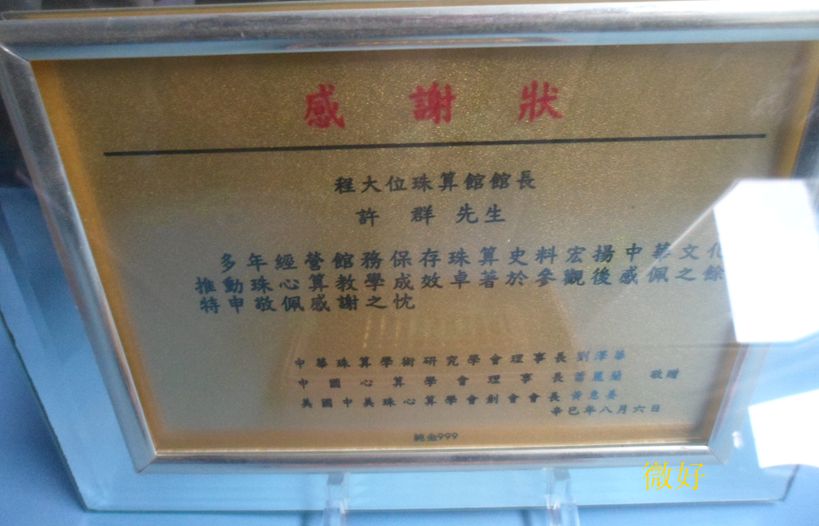 感謝狀
程大位珠算館館長
許 群 先生
多年經營館務保存珠算史料宏揚中華文化
推動珠心算教學成效卓著於參觀後感佩之餘
特申敬佩感謝之忱
中華珠算學術研究學會理事長劉澤華
中國心算學會理事長蕭麗蘭 敬贈
美國中美珠心算學會創會會長黃意麥
辛巳年八月六日
純金999
微好